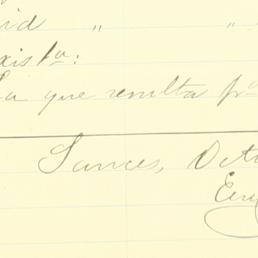 id " "
xista:
La que resulta p
Sances, Oct